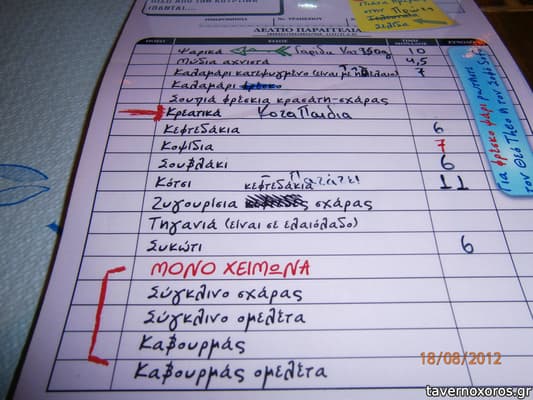 ΔΕΛΤΙΟ ΠΑΡΑΓΓΕΛΙΑ
Ψαρικά Γαρίδα 10
Μύδια αχνιστά 4,5
Καλαμάρι κατεψυγμένο (είναι με 7
Καλαμάρι φρέσκο
Σουπιά φρέσκια κρασάτη-σχάρας
Κρεατικά Κοτα Παιδια
Κεφτεδάκια 6
Κοψίδια 7
Σουβλάκι 6
Κότσι 11
κεφτεδάκια
Ζυγουρίσια σχάρας
Τηγανιά (είναι σε ελαιόλαδο)
Συκώτι 6
ΜΟΝΟ ΧΕΙΜΩΝΑ
Σύγκλινο σχάρας
Σύγκλινο ομελέτα
Καβουρμάς
Καβουρμάς ομελέτα
Για φρέσκο ψάρι ρωτήστε
τον Θεό Theo ή τον
18/08/2012
tavernoxoros.gr